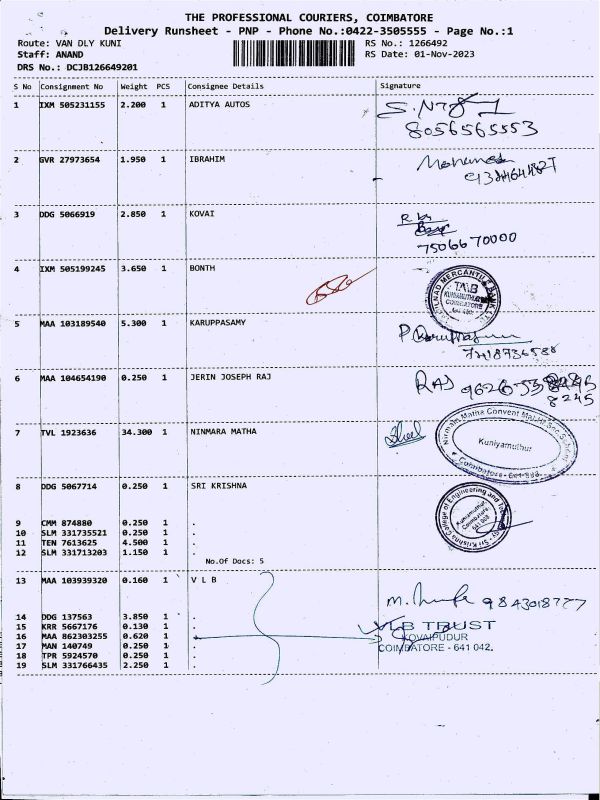 THE PROFESSIONAL COURIERS, COIMBATORE
Delivery Runsheet - PNP - Phone No.:0422-3505555 - Page No.:1
Route: VAN DLY KUNI RS No.: 1266492
Staff: ANAND RS Date: 01-Nov-2023
DRS No.: DCJB126649201
S No Consignment No Weight PCS Consignee Details Signature
1 IXM 505231155 2.200 1 ADITYA AUTOS
8056565553
2 GVR 27973654 1.950 1 IBRAHIM
Mohamed
3 DDG 5066919 2.850 1 KOVAI
7506670000
4 IXM 505199245 3.650 1 BONTH
TAMILNAD MERCANTILE BANK LTD
TMB
KUNIAMUTHUR
COIMBATORE
5 MAA 103189540 5.300 1 KARUPPASAMY
P.
6 MAA 104654190 0.250 1 JERIN JOSEPH RAJ RAJ
8245
7 TVL 1923636 34.300 1 NINMARA MATHA
Nirmala Matha Convent
Kuniyamuthur
Coimbatore - 641 008
8 DDG 5067714 0.250 1 SRI KRISHNA
Sri Krishna College of Engineering and
Kuniamuthur,
Coimbatore.
641 008
9 CMM 874880 0.250 1 .
10 SLM 331735521 0.250 1 .
11 TEN 7613625 4.500 1 .
12 SLM 331713203 1.150 1 .
No.Of Docs: 5
13 MAA 103939320 0.160 1 V L B
9843018777
14 DDG 137563 3.850 1 .
15 KRR 5667176 0.130 1 . VLB TRUST
16 MAA 862303255 0.620 1 . KOVAIPUDUR
17 MAN 140749 0.250 1 . COIMBATORE - 641 042.
18 TPR 5924570 0.250 1 .
19 SLM 331766435 2.250 1 .